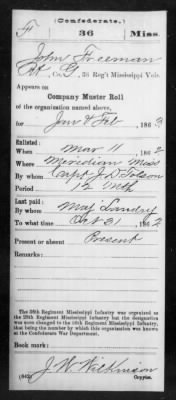 (Confederate.)
F 36 Miss.
John Freeman
Co. G, 36 Reg't Mississippi Vols.
Appears on
Company Muster Roll
of the organization named above,
for Jan & Feb, 1863
Enlisted:
When Mar 11, 1862
Where Meridian Miss
By whom Capt J. D.
Period 12 Mth
Last paid:
By whom Maj Landry
To what time Oct 31, 1862
Present or absent Present
Remarks:
The 36th Regiment Mississippi Infantry was organized as
the 29th Regiment Mississippi Infantry but the designation
was soon changed to the 36th Regiment Mississippi Infantry,
that being the number by which this organization was known at
the Confederate War Department.
Book mark:
J. W. Wilkinson
(642) Copyist.